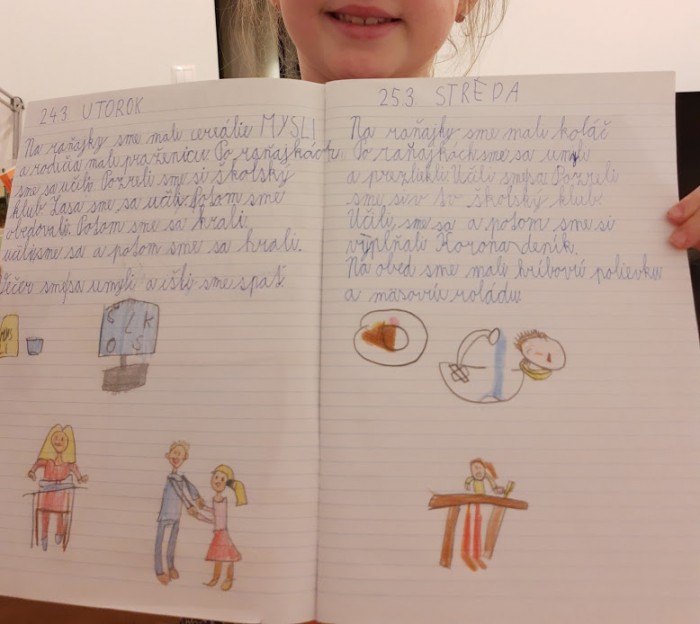 24.3 UTOROK
Na raňajky sme mali cereálie MYSLI
a rodičia mali praženicu. Po raňajkách
sme sa učili. Pozreli sme si školský
klub. Zasa sme sa učili. Potom sme
obedovali. Potom sme sa hrali,
učili sme sa a potom sme sa hrali.
Večer sme sa umyli a išli sme spať.
Š L K
O S
25.3 STREDA
Na raňajky sme mali koláč
Po raňajkách sme sa umyli
a prezliekli. Učili sme sa. Pozreli
sme si v tv školský klub.
Učili sme sa a potom sme si
vypĺňali Korona denník.
Na obed sme mali hríbovú polievku
a mäsovú roládu.